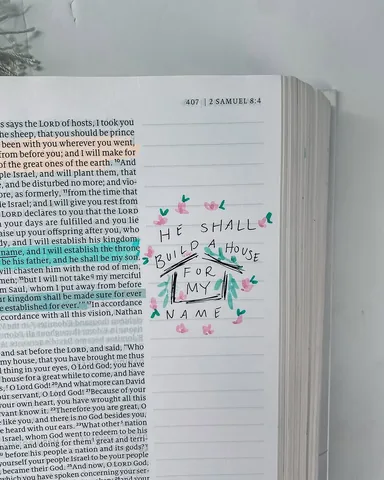 407 | 2 SAMUEL 8:4
s says the LORD of hosts, I took you
he sheep, that you should be prince
been with you wherever you went,
from before you; and I will make for
of the great ones of the earth. 10And
ple Israel, and will plant them, that
e, and be disturbed no more; and vio-
ore, as formerly, 11from the time that
le Israel; and I will give you rest from
LORD declares to you that the LORD
your days are fulfilled and you lie
aise up your offspring after you, who
dy, and I will establish his kingdom.
name, and I will establish the throne
be his father, and he shall be my son.
will chasten him with the rod of men,
men; 15but I will not take my merciful
m Saul, whom I put away from before
ur kingdom shall be made sure for ever
e established for ever.'" 17In accordance
ccordance with all this vision, Nathan
and sat before the LORD, and said, "Who
my house, that you have brought me thus
ll thing in your eyes, O Lord GOD; you have
house for a great while to come, and have
O Lord GOD! 20And what more can David
ur servant, O Lord GOD! 21Because of your
our own heart, you have wrought all this
rvant know it. 22Therefore you are great, O
like you; and there is no God besides you,
heard with our ears. 23What other nation
Israel, whom God went to redeem to be his
name, and doing for them great and terri-
before his people a nation and its gods?
yourself your people Israel to be your people
became their God. 25And now, O LORD God,
hich you have spoken concerning your ser-
HE SHALL
BUILD A HOUSE
FOR
MY
NAME